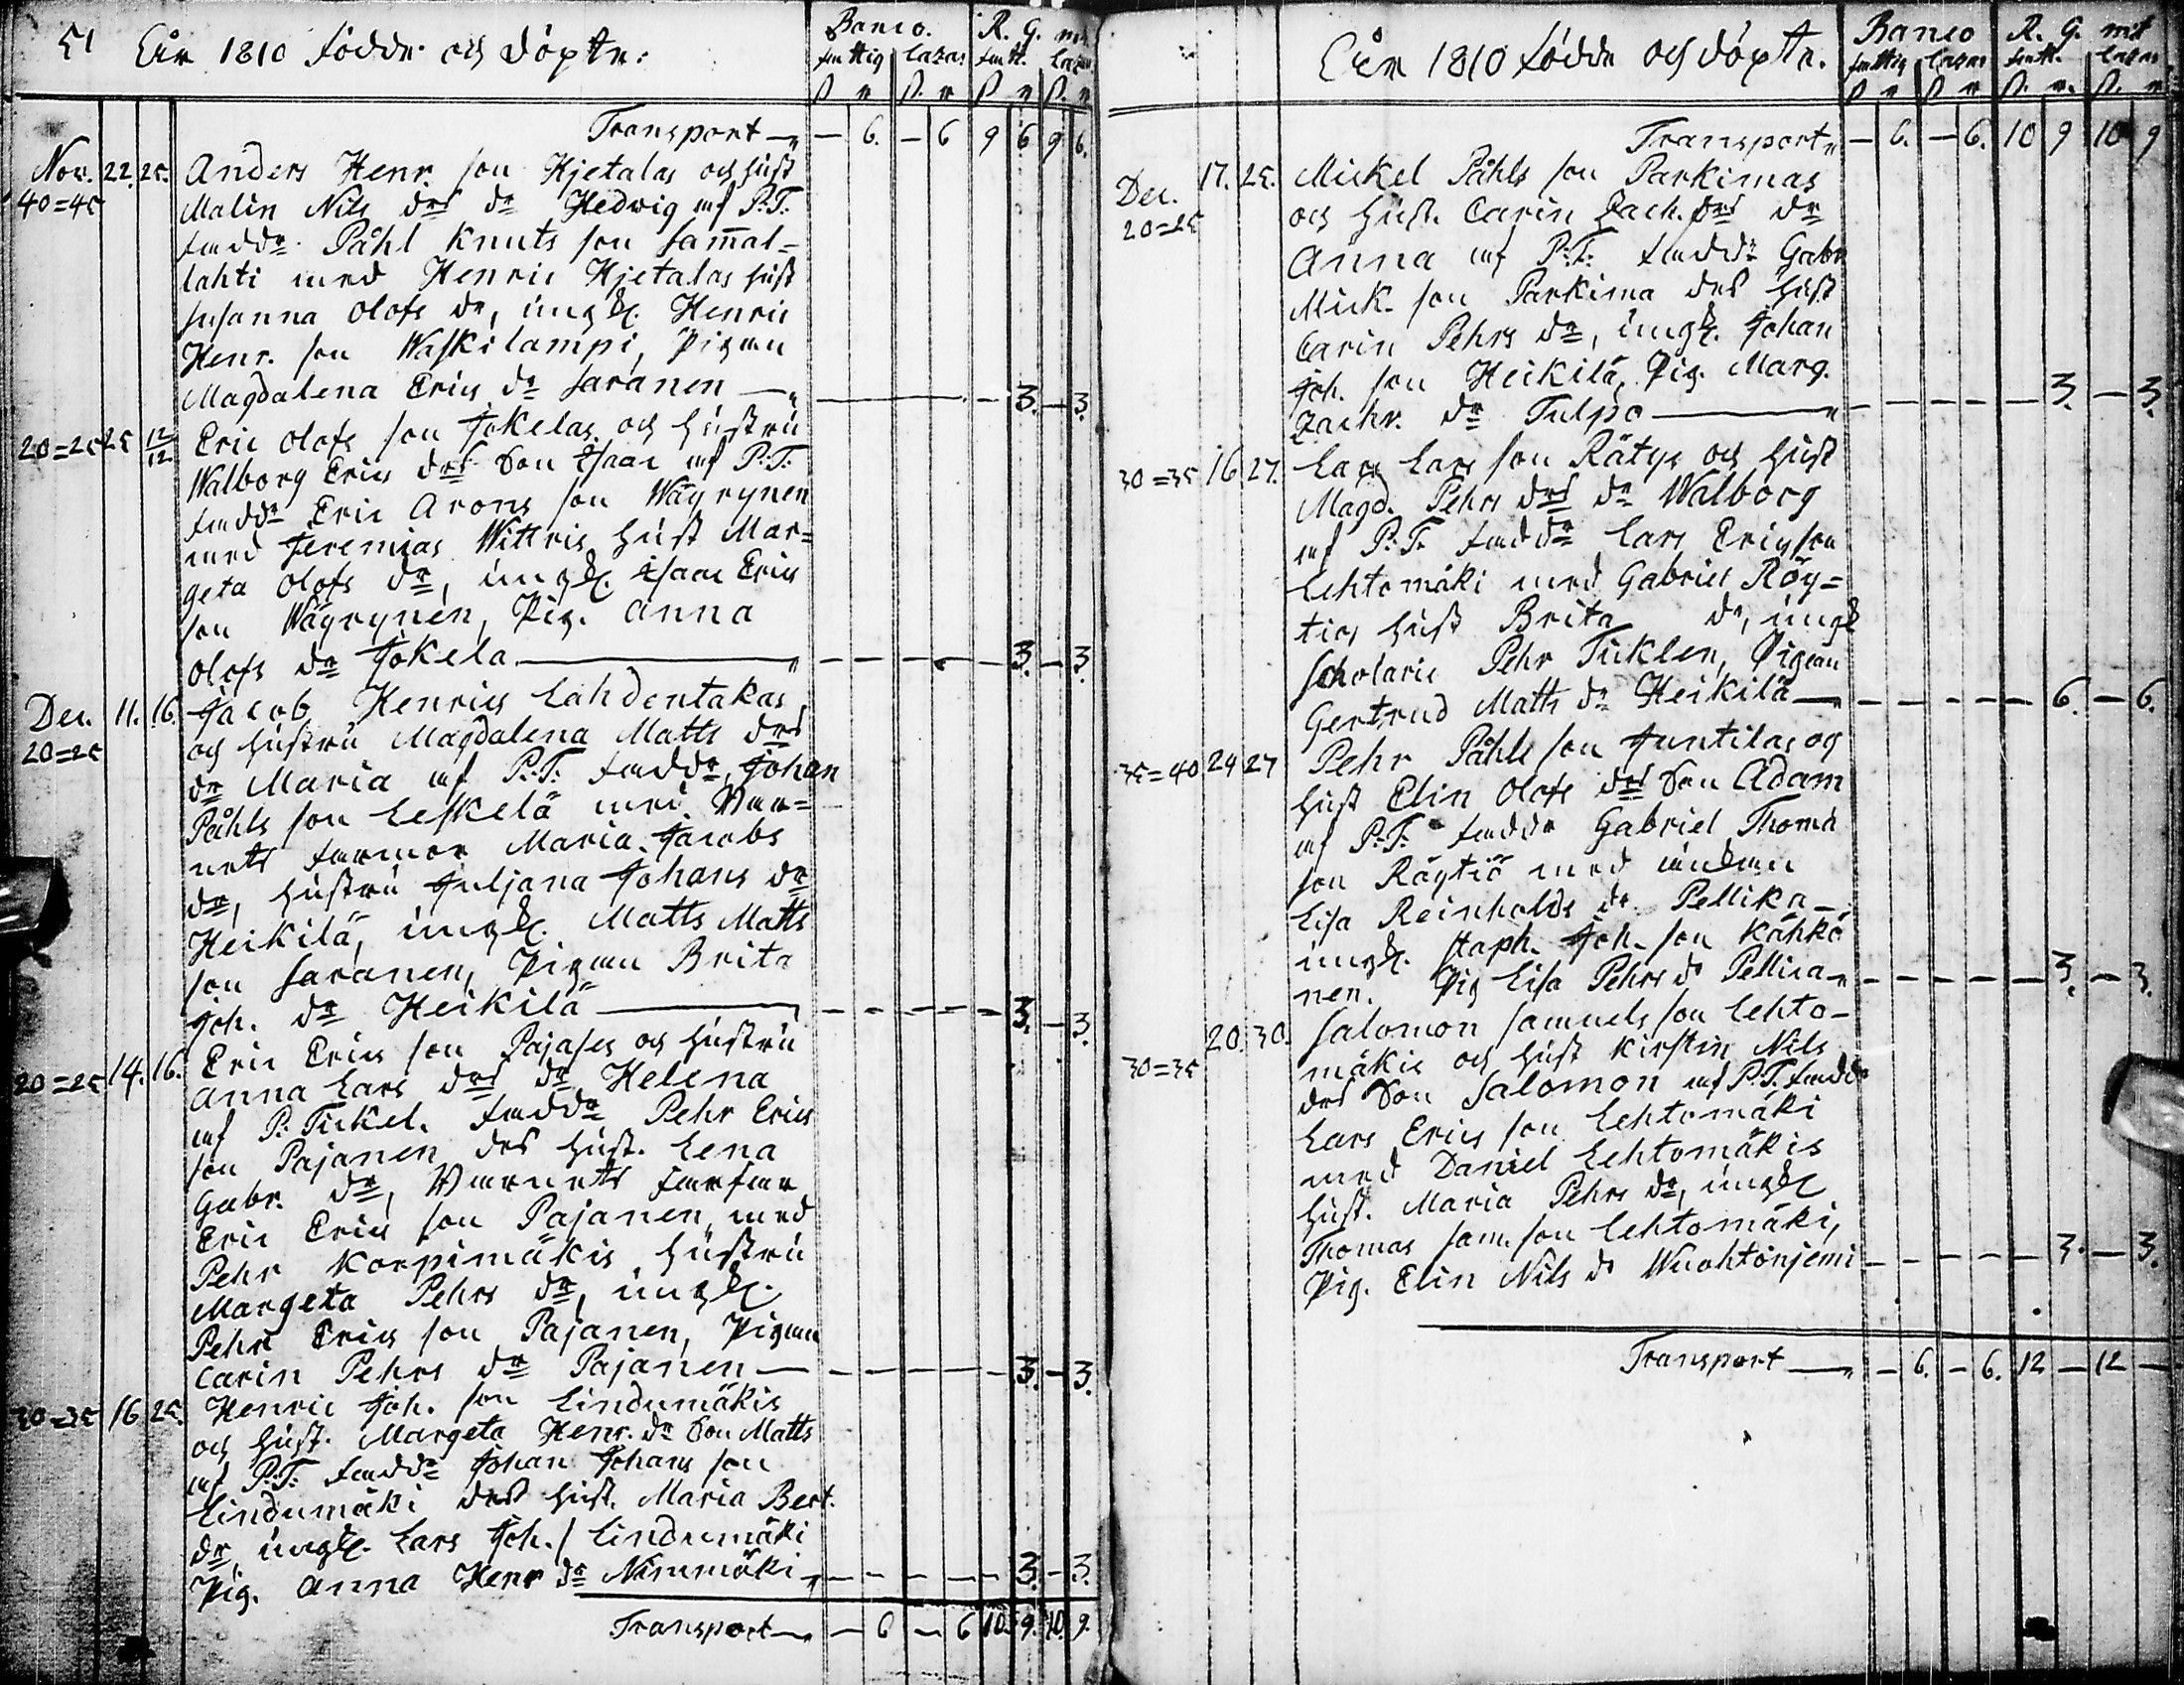 51 År 1810 födde och döpte:
Banco. R. G. mt
fattig lazar fatt. lazar
ß r ß. r ß r ß. r
Transport — 6. — 6 9 6 9 6.
Nov. 22. 25. Anders Henr. son Hjetalas och hust
40=45 Malin Nils drs dr Hedwig af P:T:
faddr. Påhl Knuts son Sammal=
lahti med Henric Hjetalas hust
Susanna Olofs dr, ungk. Henric
Henr. son Waskilampi, Pigan
Magdalena Erics dr Saranen — 3. — 3.
20=25 25 12/12 Eric Olofs son Jokelas och hustru
Walborg Erics drs Son Isaac af P:T:
faddr Eric Arons son Wäyrynen
med Jeremias Wittris hust Mar=
geta Olofs dr, ungk. Isaac Erics
son Wäyrynen, Pig. Anna
Olofs dr Jokela — 3. — 3.
Dec. 11. 16. Jacob Henrics Lahdentakas
20=25 och hustru Magdalena Matts drs
dr Maria af P:T: faddr. Johan
Påhls son Leskelä med Bar=
nets farmor Maria Jacobs
dr, hustru Juljana Johans dr
Heikilä, ungk. Matts Matts
son Saranen, Pigan Brita
Joh. dr Heikilä — 3. — 3.
20=25 14. 16. Eric Erics son Pajases och hustru
Anna Lars drs dr Helena
af P: Tickel. faddr Pehr Erics
son Pajanen des hust. Lena
Gabr. dr, Barnets farfar
Eric Erics son Pajanen, med
Pehr Korpimäkis hustru
Margeta Pehrs dr, ungk.
Pehr Erics son Pajanen, Pigan
Carin Pehrs dr Pajanen — 3. — 3.
30=35 16 25. Henric Joh. son Lindumäkis
och hust. Margeta Henr. dr Son Matts
af P:T: faddr Johan Johans son
Lindumäki des hust. Maria Bert.
dr, ungk. Lars Joh. s Lindumäki
Pig. Anna Henr dr Nimmäki — 3. — 3.
Transport — 6 — 6 10. 9. 10. 9.
År 1810 födde och döpte.
Banco R. G. mt
fattig lazar fatt. lazar
ß r ß r ß. r. ß. r
Transport — 6. — 6. 10 9 10 9
Dec. 17. 25. Mickel Påhls son Parkimas
20=25 och hust. Carin Zach. drs dr
Anna af P:T: faddr Gabr
Mick. son Parkima des hust
Carin Pehrs dr, ungk. Johan
Joh. son Heikilä, Pig. Marg.
Zachr. dr Tulpo — 3. — 3.
30=35 16 27. Lars Lars son Rätys och hust
Magd. Pehrs drs dr Walborg
af P:T. faddr Lars Erics son
Lehtomäki med Gabriel Röy=
tics hust Brita dr, ungk
Scholaric Pehr Ticklen, Pigan
Gertrud Matts dr Heikilä — 6. — 6.
35=40 24 27 Pehr Påhls son Juntilas og
hust Elin Olofs drs Son Adam
af P:T: faddr Gabriel Thoma
son Räytiö med änkan
Lisa Reinholds dr Pellika—
ungk. Staph. Joh. son Kähkö
nen. Pig Lisa Pehrs dr Pellica — 3. — 3.
20. 30. Salomon Samuels son Lehto—
30=35 mäkis och hust Kirstin Nils
drs Son Salomon af P:T. faddr
Lars Erics son Lehtomäki
med Daniel Lehtomäkis
hust. Maria Pehrs dr, ungk
Thomas Sam. son Lehtomäki,
Pig. Elin Nils dr Wuohtonjemi — 3. — 3.
Transport — 6. — 6. 12 — 12 —